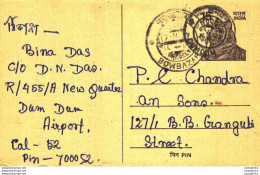 ঠিকানা:
Bina Das
C/O D. N. Das.
R/455/A New Quarter
Dum Dum
Airport,
Cal - 52
Pin - 700052.
भारत
INDIA
P. C. Chandra
an Sons.
127/1 B. B. Ganguli
Street.
पिन PIN